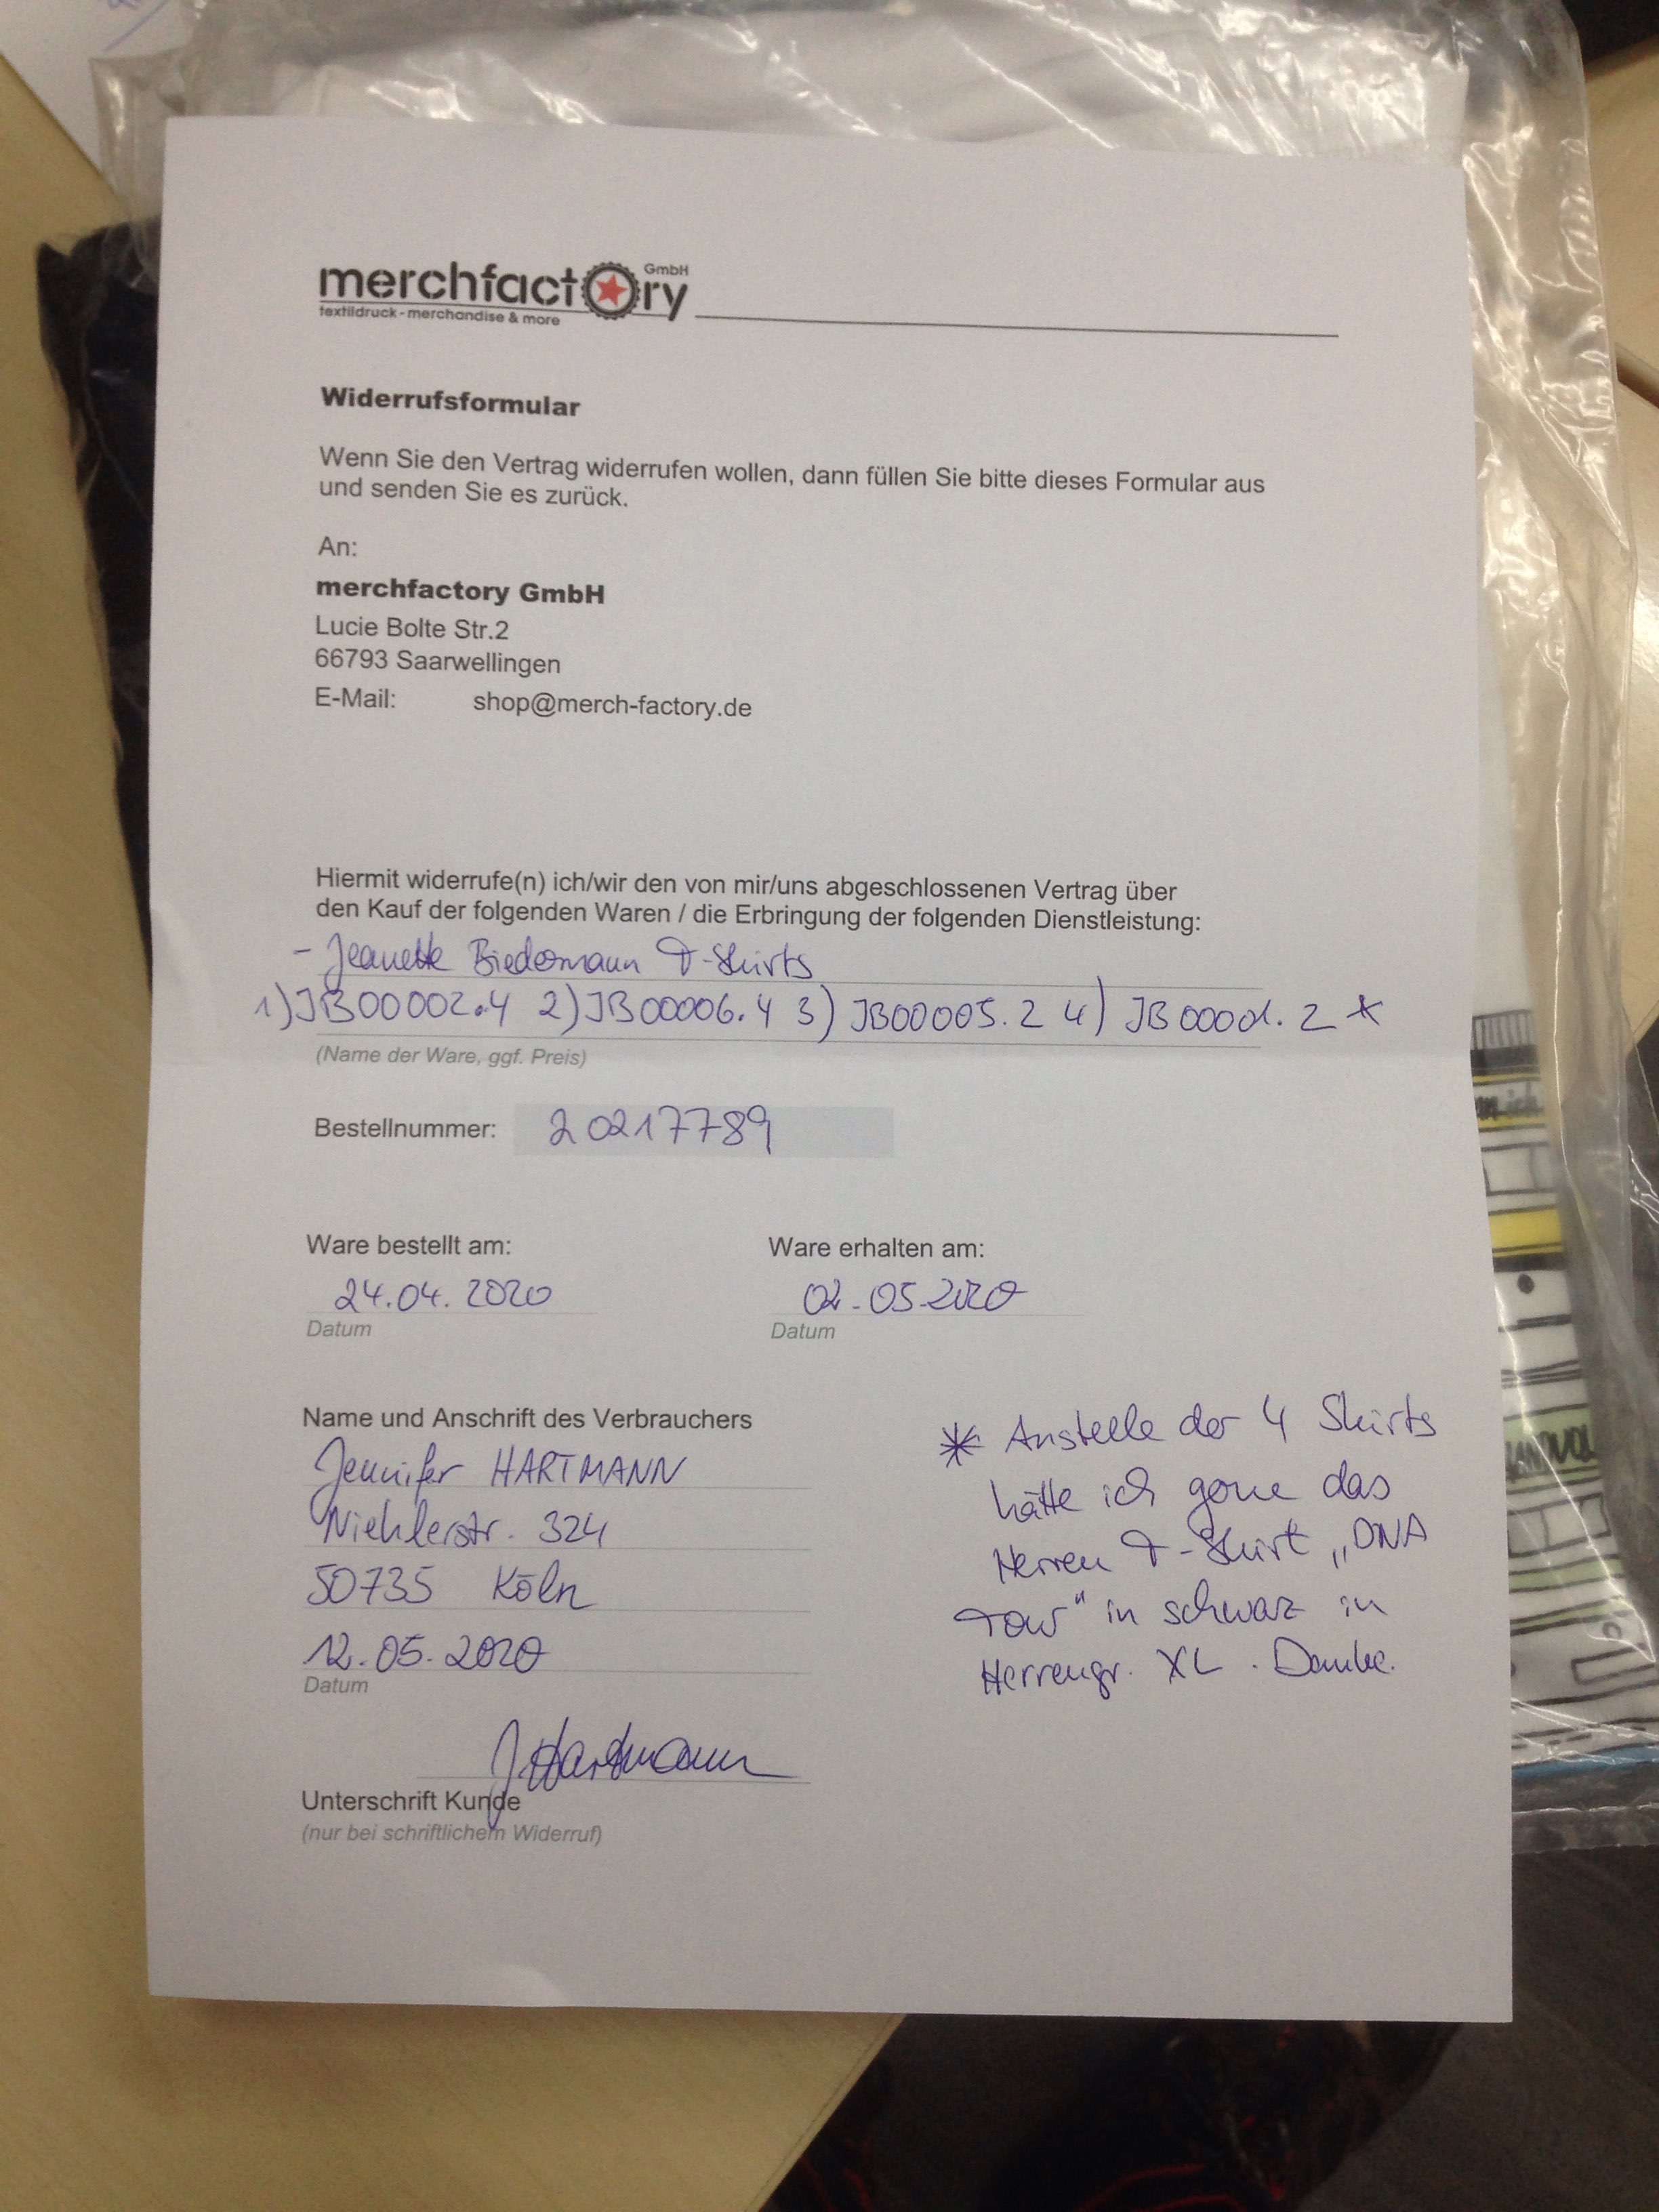 merchfactory GmbH
textildruck - merchandise & more
Widerrufsformular
Wenn Sie den Vertrag widerrufen wollen, dann füllen Sie bitte dieses Formular aus
und senden Sie es zurück.
An:
merchfactory GmbH
Lucie Bolte Str.2
66793 Saarwellingen
E-Mail: shop@merch-factory.de
Hiermit widerrufe(n) ich/wir den von mir/uns abgeschlossenen Vertrag über
den Kauf der folgenden Waren / die Erbringung der folgenden Dienstleistung:
- Jeanette Biedermann T-Shirts
1) JB00002.4 2) JB00006.4 3) JB00005.2 4) *
(Name der Ware, ggf. Preis)
Bestellnummer: 20217789
Ware bestellt am: Ware erhalten am:
24.04.2020 02.05.2020
Datum Datum
Name und Anschrift des Verbrauchers
Jennifer HARTMANN
Niehlerstr. 324
50735 Köln
12.05.2020
Datum
* Anstelle der 4 Shirts
hätte ich gerne das
Herren T-Shirt „DNA
Tour" in schwarz in
Herrengr. XL. Danke.
J Hartmann
Unterschrift Kunde
(nur bei schriftlichem Widerruf)